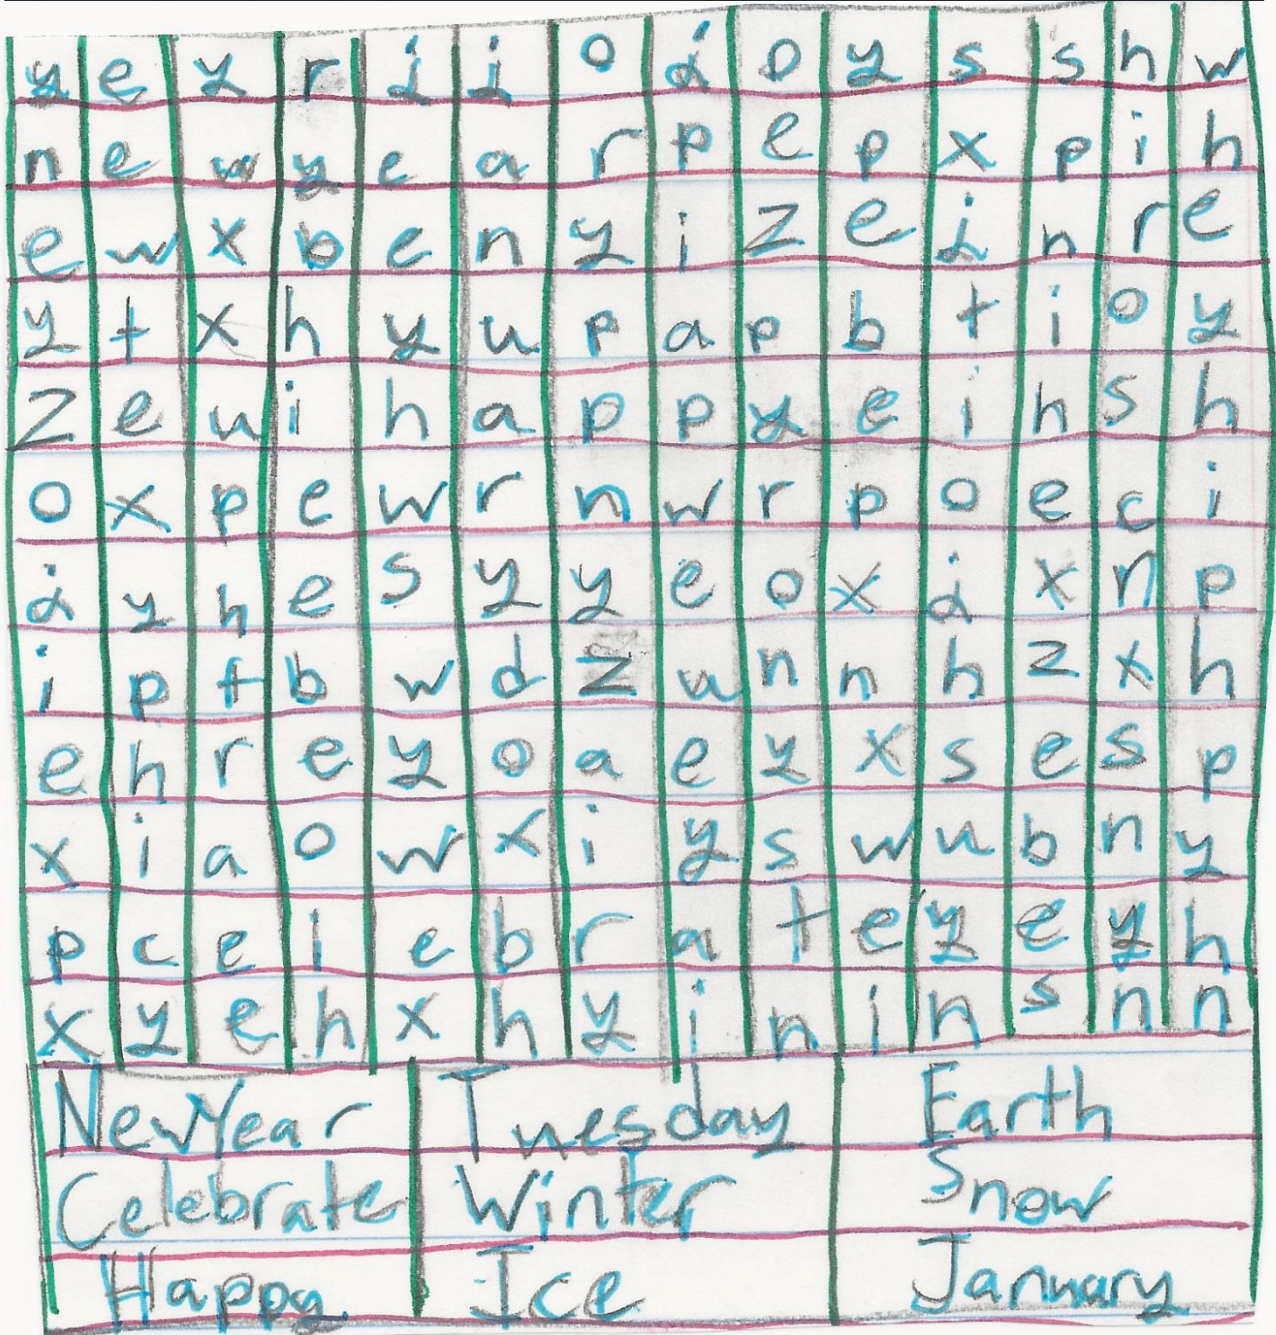 y e y r j j o j o y s s h w
n e w y e a r p e p x p i h
e w x b e n y i z e j n r e
y t x h y u p a p b t i o y
z e u i h a p p y e i h s h
o x p e w r n w r p o e c i
j y h e s y y e o x j x n p
i p t b w d z u n n h z x h
e h r e y o a e y x s e s p
x i a o w x i y s w u b n y
p c e l e b r a t e y e y h
x y e h x h y i n i n s n n
NewYear Tuesday Earth
Celebrate Winter Snow
Happy Ice January